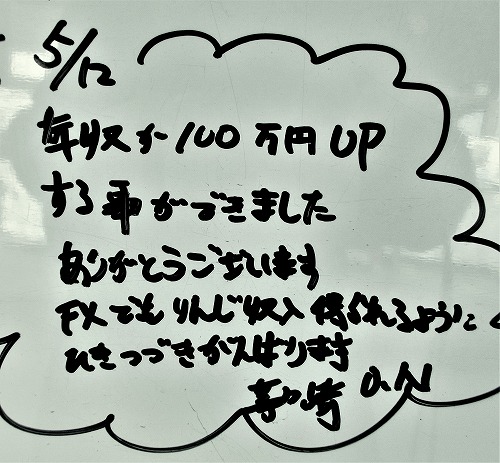 5/12
年収が100万円UP
する事ができました
ありがとうございます
FXでもりんじ収入得られるように
ひきつづきがんばります
茅ヶ崎 O.N